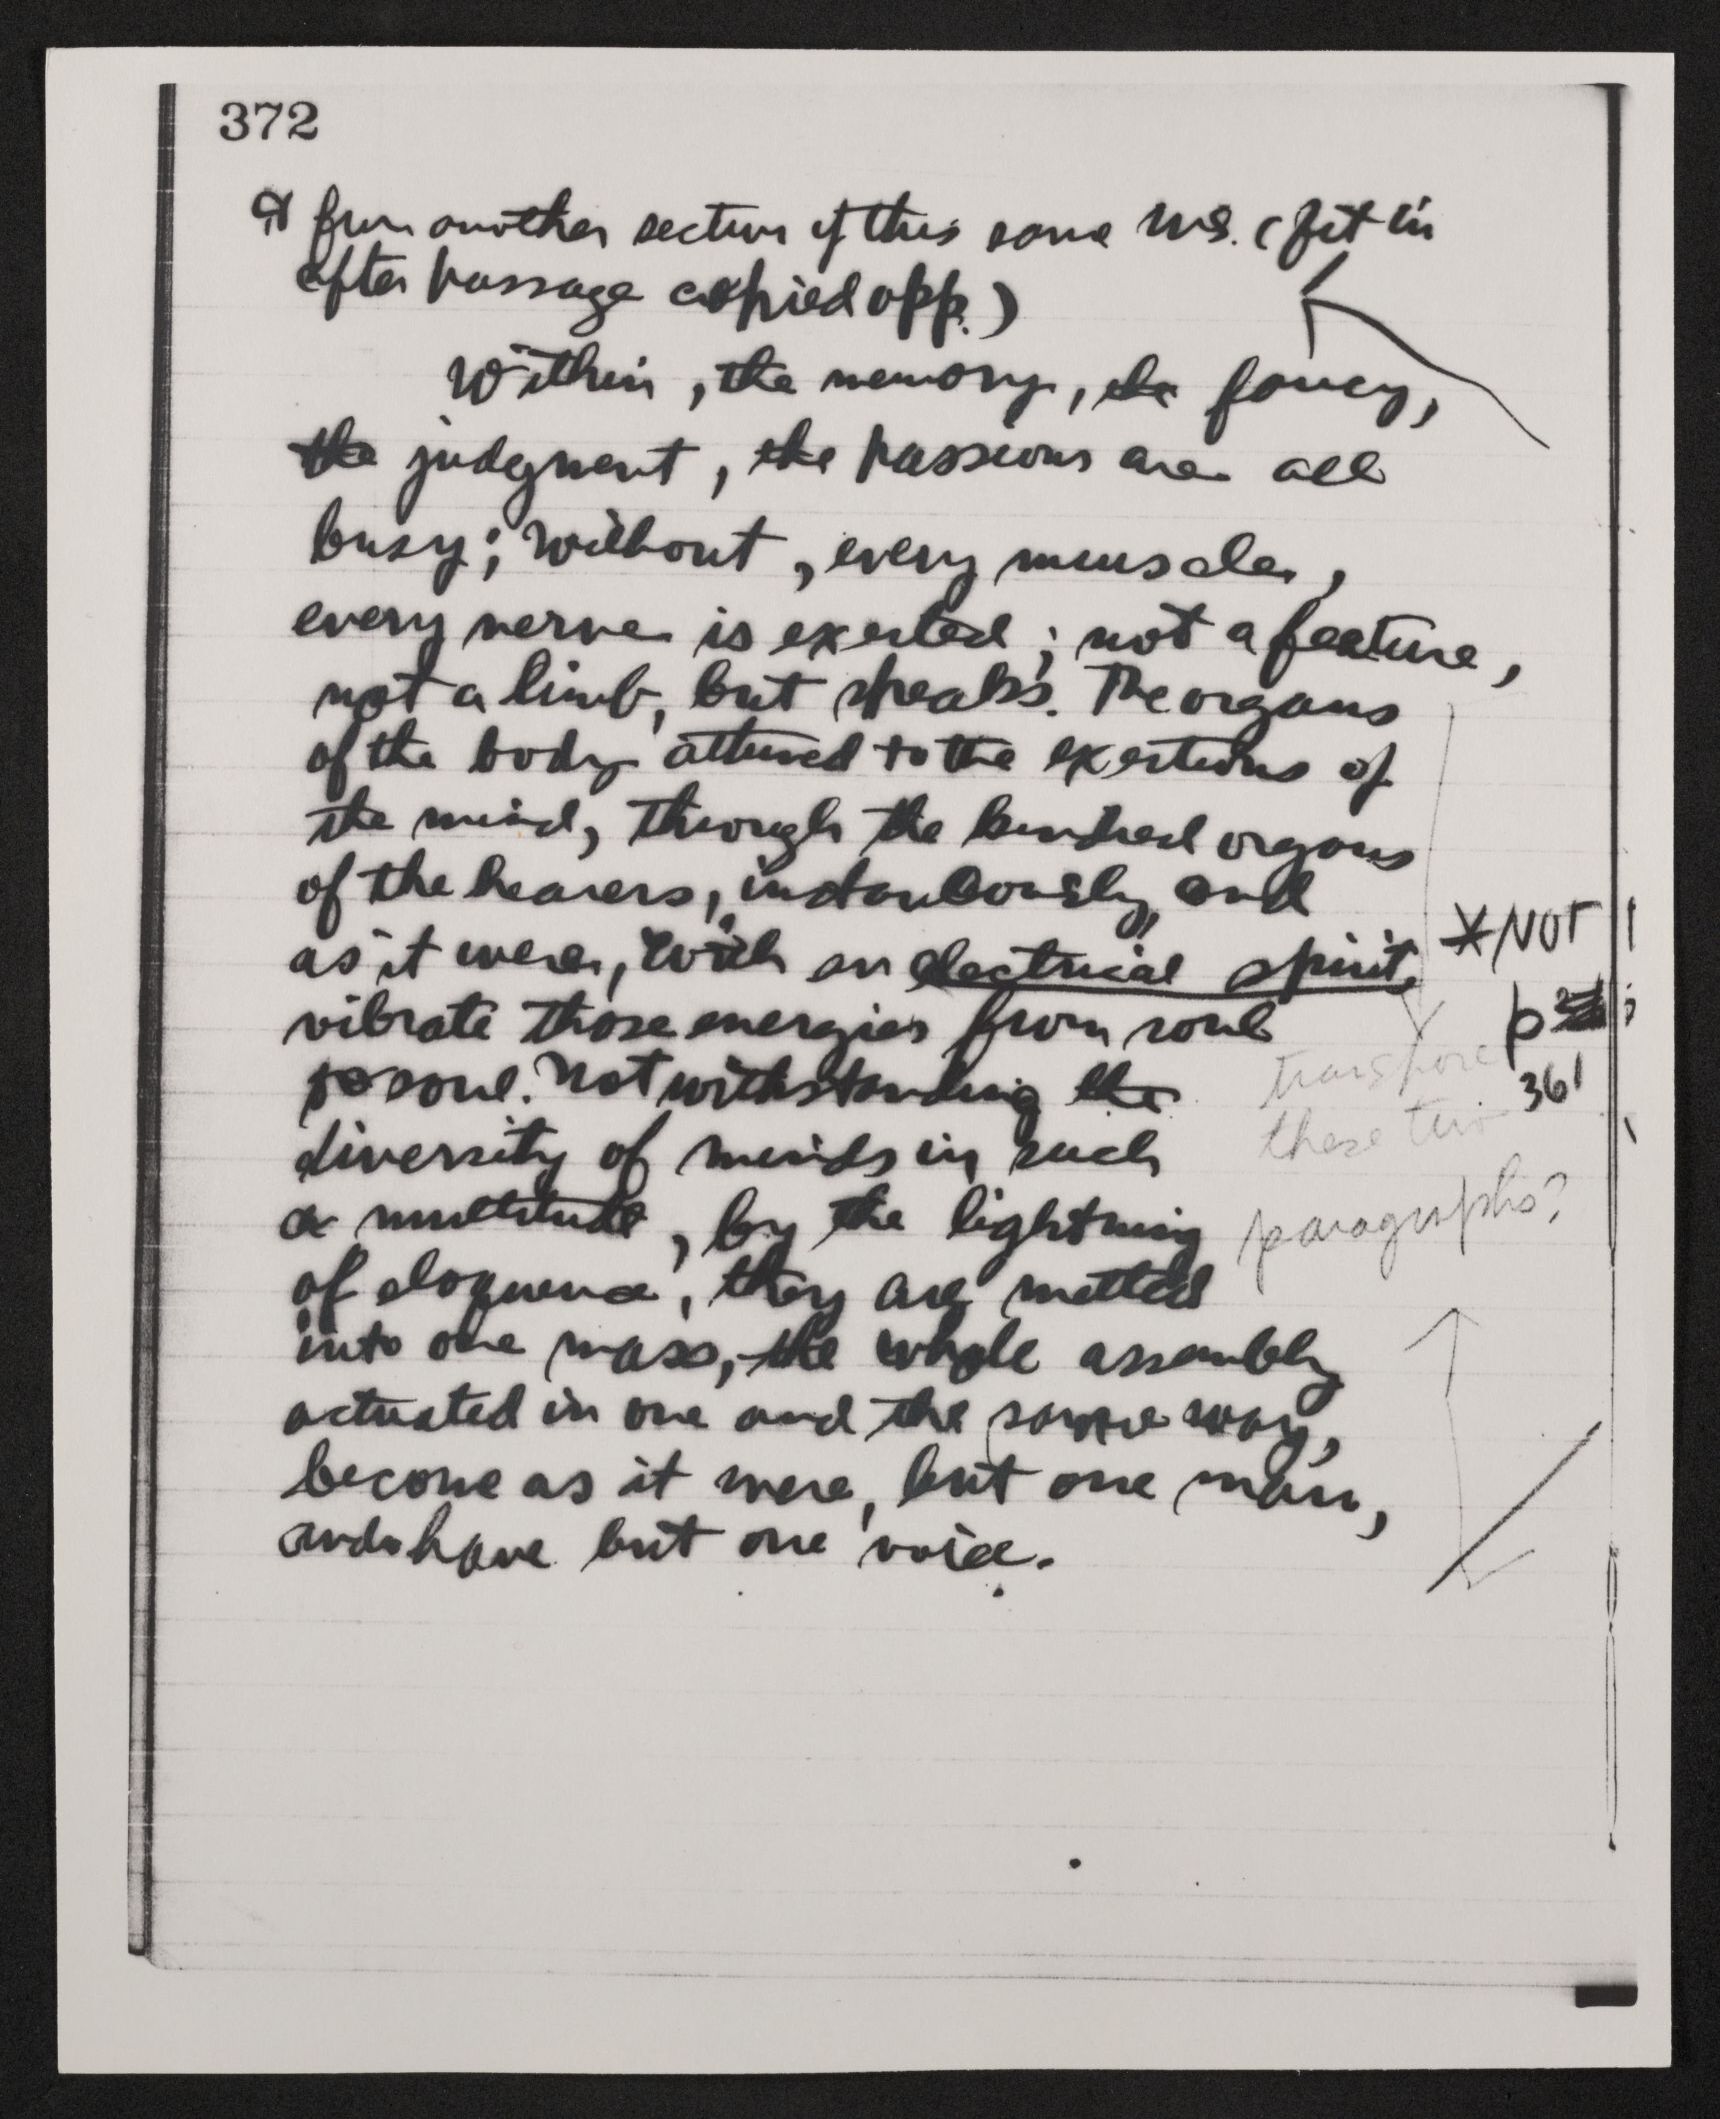 372
from another section of this same ms. (fit in
after passage copied opp.)
Within, the memory, the fancy,
the judgment, the passions are all
busy; without, every muscle,
every nerve is exerted; not a feature,
not a limb, but speaks. The organs
of the body attuned to the exertions of
the mind, through the kindred organs
of the hearers, instantaneously, and
as it were, with an electrical spirit,
vibrate those energies from soul
to soul. Notwithstanding the
diversity of minds in such
a multitude, by the lightning
of eloquence, they are melted
into one mass, the whole assembly
actuated in one and the same way,
become as it were, but one man,
and have but one voice.
*NOT
p
361
transpose
these two
paragraphs?